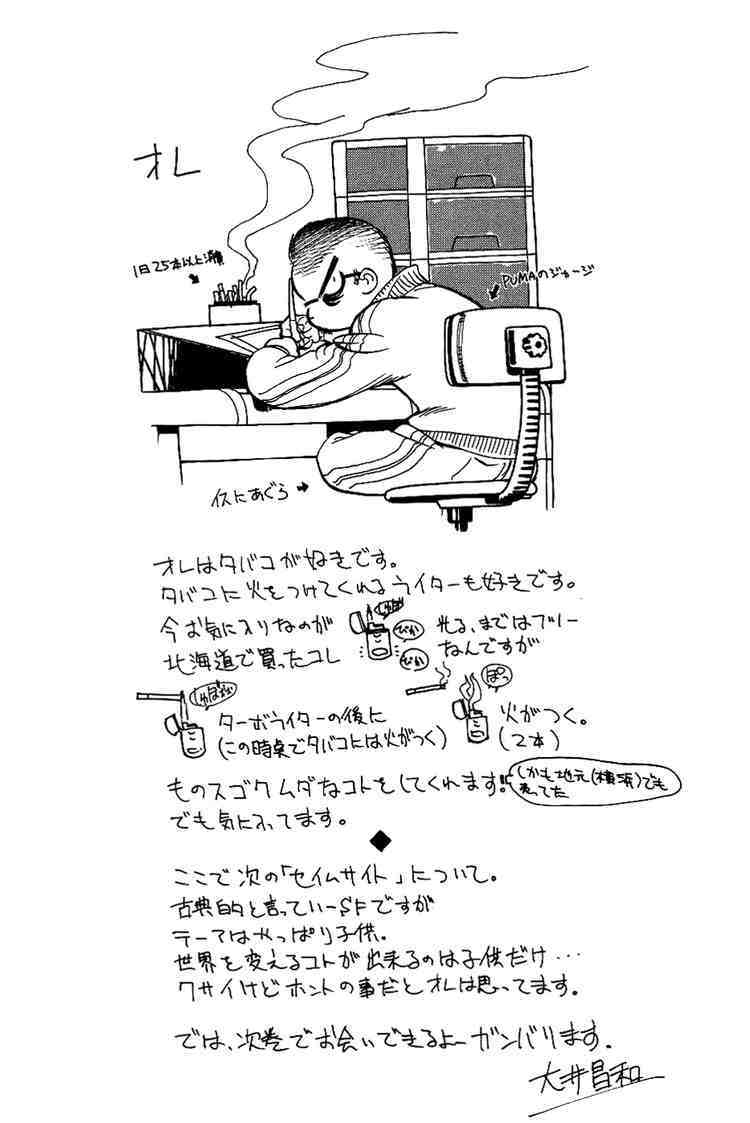 オレ
1日25本以上消費
PUMAのジャージ
イスにあぐら
オレはタバコが好きです。
タバコに火をつけてくれるライターも好きです。
今お気に入りなのが
北海道で買ったコレ
しゅぼ
ぴか
ぴか
光る、まではブリー
なんですが
しゅぼぉぉ
ターボライターの後に
(この時点でタバコには火がつく)
ぽっ
火がつく。
(2本)
ものスゴクムダなコトをしてくれます!!
しかも地元(横浜)でも
売ってた
でも気に入ってます。
ここで次の「セイムサイト」について。
古典的と言っていーSFですが
テーマはやっぱり子供。
世界を変えるコトが出来るのは子供だけ…
クサイけどホントの事だとオレは思ってます。
では、次巻でお会いできるよーガンバります.
大井昌和